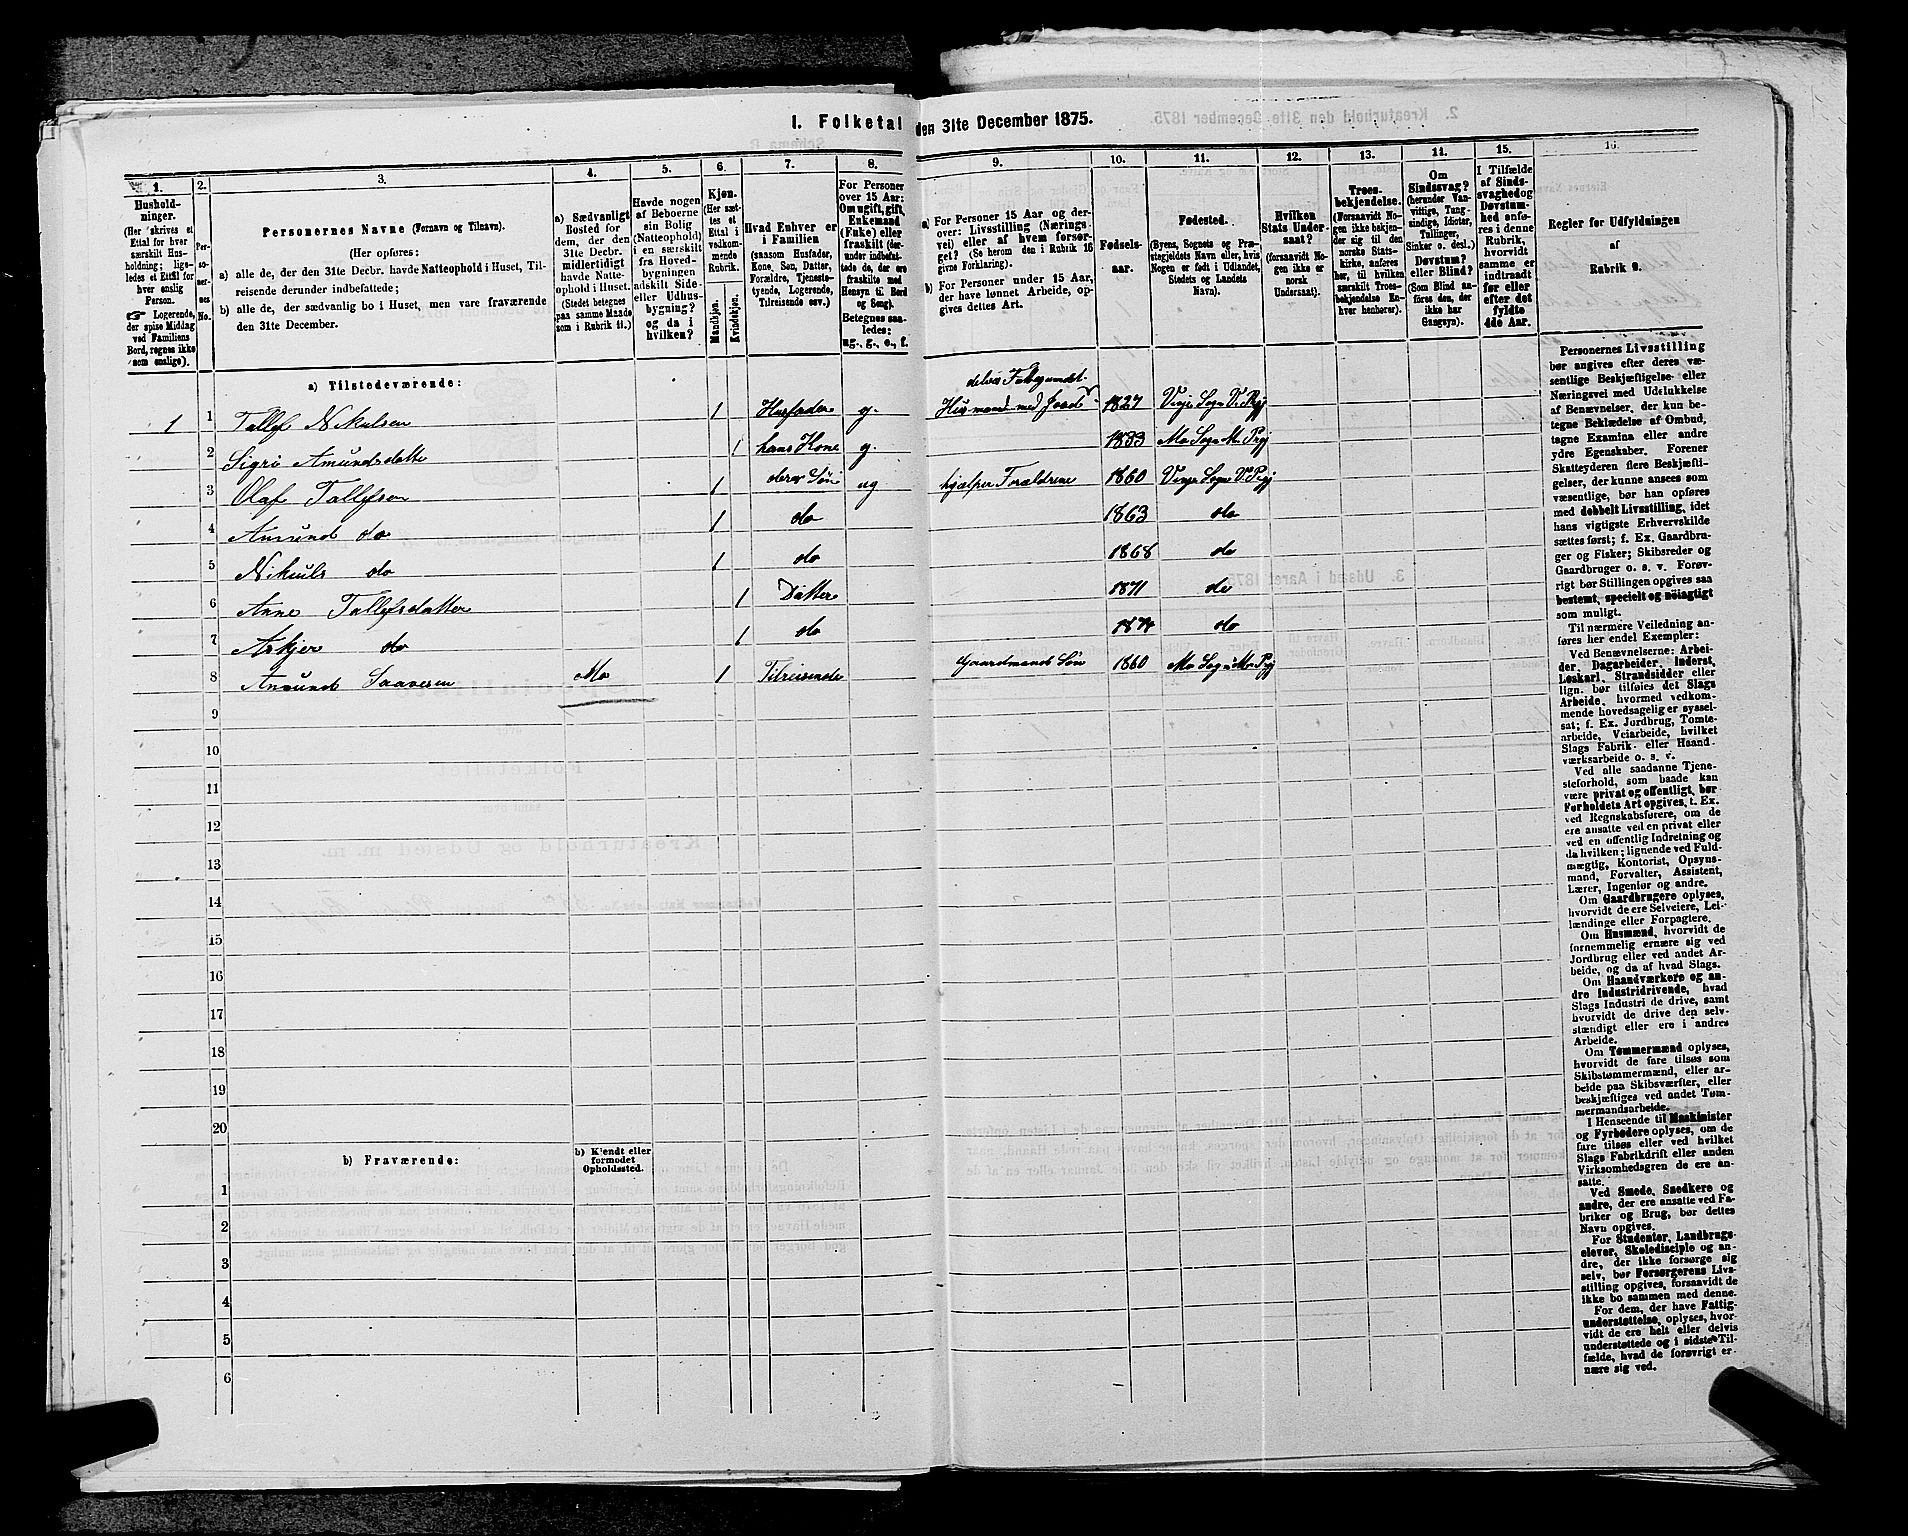 I. Folketal den 31te December 1875.
1. 2. 3. 4. 5. 6. 7. 8. 9. 10. 11. 12. 13. 14. 15. 16.
Hushold-
ninger.
(Her skrives et
Ettal for hver
særskilt Hus-
holdning; lige-
ledes et Ettal for
hver enslig
Person.
☞ Logerende,
der spise Middag
ved Familiens
Bord, regnes ikke
som enslige).
Per-
so-
ner-
nes
No.
Personernes Navne (Fornavn og Tilnavn).
(Her opføres:
a) alle de, der den 31te Decbr. havde Natteophold i Huset, Til-
reisende derunder indbefattede;
b) alle de, der sædvanlig bo i Huset, men vare fraværende
den 31te December.
a) Sædvanligt
Bosted for
dem, der den
31te Decbr.
midlertidigt
havde Natte-
ophold i Huset.
(Stedet betegnes
paa samme Maade
som i Rubrik 11.)
Havde nogen
af Beboerne
sin Bolig
(Natteophold)
i en særskilt
fra Hoved-
bygningen
adskilt Side-
eller Udhus-
bygning?
og da i
hvilken?
Kjøn.
(Her sæt-
tes et
Ettal i
vedkom-
mende
Rubrik.
Mandkjøn.
Kvindekjøn.
Hvad Enhver er
i Familien
(saasom Husfader,
Kone, Søn, Datter,
Forældre, Tjeneste-
tyende, Logerende,
Tilreisende osv.)
For Personer
over 15 Aar:
Om ugift, gift,
Enkemand
(Enke) eller
fraskilt (der-
under indbefat-
tede de, der ere
fraskilte med
Hensyn til Bord
og Seng).
Betegnes saa-
ledes:
ug., g., e., f.
a) For Personer 15 Aar og der-
over: Livsstilling (Nærings-
vei) eller af hvem forsør-
get? (Se herom den i Rubrik 16
givne Forklaring).
b) For Personer under 15 Aar,
der have lønnet Arbeide, op-
gives dettes Art.
Fødsels-
aar.
Fødested.
(Byens, Sognets og Præ-
stegjeldets Navn eller, hvis
Nogen er født i Udlandet,
Stedets og Landets
Navn).
Hvilken
Stats Under-
saat?
(forsaavidt No-
gen ikke er
norsk
Undersaat).
Troes-
bekjendelse.
(Forsaavidt No-
gen ikke bekjen-
der sig til den
norske Stats-
kirke, anføres
her, til hvilken
særskilt Troes-
bekjendelse En-
hver henhører).
Om
Sindssvag?
(herunder Van-
vittige, Tung-
sindige, Idioter,
Tullinger,
Sinker o. desl.)
Døvstum?
eller Blind?
(Som Blind an-
føres den, der
ikke har
Gangsyn).
I Tilfælde
af Sinds-
svaghed og
Døvstum-
hed anfø-
res i denne
Rubrik,
hvorvidt
samme er
indtraadt
før eller
efter det
fyldte
4de Aar.
Regler for Udfyldningen
af
Rubrik 9.
a) Tilstedeværende:
delvis
1 1 Tallef Nikulsen 1 Husfader g. Husmand med Jord 1827 Vinje Sogn V. Prgj
2 Sigri Amundsdatte 1 hans Kone g. 1833 Mo Sogn M. Prgj
3 Olaf Tallefsen 1 deres Søn ug hjælper Forældrene 1860 Vinje Sogn V. Prgj
4 Amund do 1 do 1863 do
5 Nikuls do 1 do 1868 do
6 Anne Tallefsdatter 1 Datter 1871 do
7 do 1 do do
8 Amund Mo 1 Tilreisende Gaardmands Søn 1860 Mo Sogn Mo Prgj
9
10
11
12
13
14
15
16
17
18
19
20
b) Fraværende:
b) Kjendt eller
formodet
Opholdssted.
1
2
3
4
5
6
Personernes Livsstilling
bør angives efter deres væ-
sentlige Beskjæftigelse eller
Næringsvei med Udelukkelse
af Benævnelser, der kun be-
tegne Beklædelse af Ombud,
tagne Examina eller andre
ydre Egenskaber. Forener
Skatteyderen flere Beskjæfti-
gelser, der kunne ansees som
væsentlige, bør han opføres
med dobbelt Livsstilling, idet
hans vigtigste Erhvervskilde
sættes først; f. Ex. Gaardbru-
ger og Fisker; Skibsreder og
Gaardbruger o. s. v. Forøv-
rigt bør Stillingen opgives saa
bestemt, specielt og nöiagtigt
som muligt.
Til nærmere Veiledning an-
føres her endel Exempler:
Ved Benævnelserne: Arbei-
der, Dagarbeider, Inderst,
Løskarl, Strandsidder eller
lign. bør tilføies det Slags
Arbeide, hvormed vedkom-
mende hovedsagelig er syssel-
sat; f. Ex. Jordbrug, Tomte-
arbeide, Veiarbeide, hvilket
Slags Fabrik- eller Haand-
værksarbeide o. s. v.
Ved alle saadanne Tjene-
steforhold, som baade kan
være privat og offentligt, bør
Forholdets Art opgives, t. Ex.
ved Regnskabsførere, om de
ere ansatte ved en privat eller
en offentlig Indretning og
da hvilken; lignende ved Fuld-
mægtig, Kontorist, Opsyns-
mand, Forvalter, Assistent,
Lærer, Ingeniør og andre.
Om Gaardbrugere oplyses,
hvorvidt de ere Selveiere, Lei-
lændinge eller Forpagtere.
Om Husmænd, hvorvidt de
fornemmelig ernære sig ved
Jordbrug eller ved andet Ar-
beide, og da af hvad Slags.
Om Haandværkere og an-
dre Industridrivende, hvad
Slags Industri de drive, samt
hvorvidt de drive den selv-
stændigt eller ere i andres
Arbeide.
Om Tømmermænd oplyses,
hvorvidt de fare tilsøs som
Skibstømmermænd, eller ar-
beide paa Skibsværfter, eller
beskjæftiges ved andet Tøm-
mermandsarbeide.
I Henseende til Maskinister
og Fyrbødere oplyses, om de
fare tilsøs eller ved hvilket
Slags Fabrikdrift eller anden
Virksomhedsgren de ere an-
satte.
Ved Smede, Snedkere og
andre, der ere ansatte ved Fa-
briker og Brug, bør dettes
Navn opgives.
For Studenter, Landbrugs-
elever, Skoledisciple og an-
dre, der ikke forsørge sig
selv, bør Forsørgerens Livs-
stilling opgives, forsaavidt de
ikke bo sammen med denne.
For dem, der have Fattig-
understøttelse, oplyses, hvor-
vidt de ere helt eller delvis
understøttede og i sidste Til-
fælde, hvad de forøvrigt er-
nære sig ved.